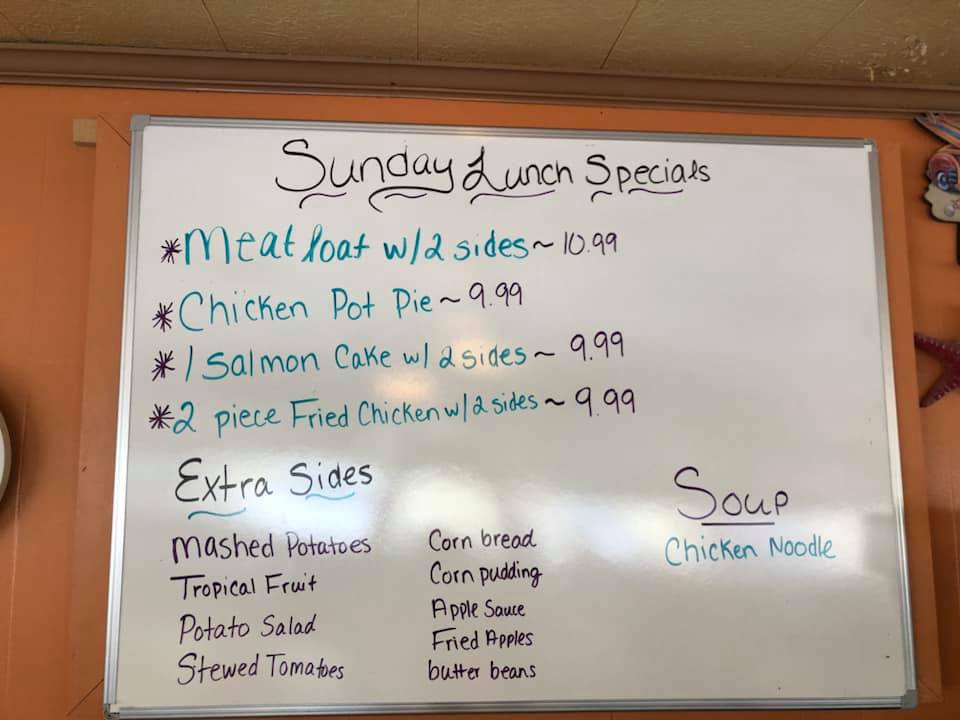 Sunday Lunch Specials
*Meat loaf w/2 sides ~ 10.99
*Chicken Pot Pie ~ 9.99
*1 Salmon Cake w/ 2 sides ~ 9.99
*2 piece Fried Chicken w/2 sides ~ 9.99
Extra Sides
Mashed Potatoes
Tropical Fruit
Potato Salad
Stewed Tomatoes
Corn bread
Corn pudding
Apple Sauce
Fried Apples
butter beans
Soup
Chicken Noodle